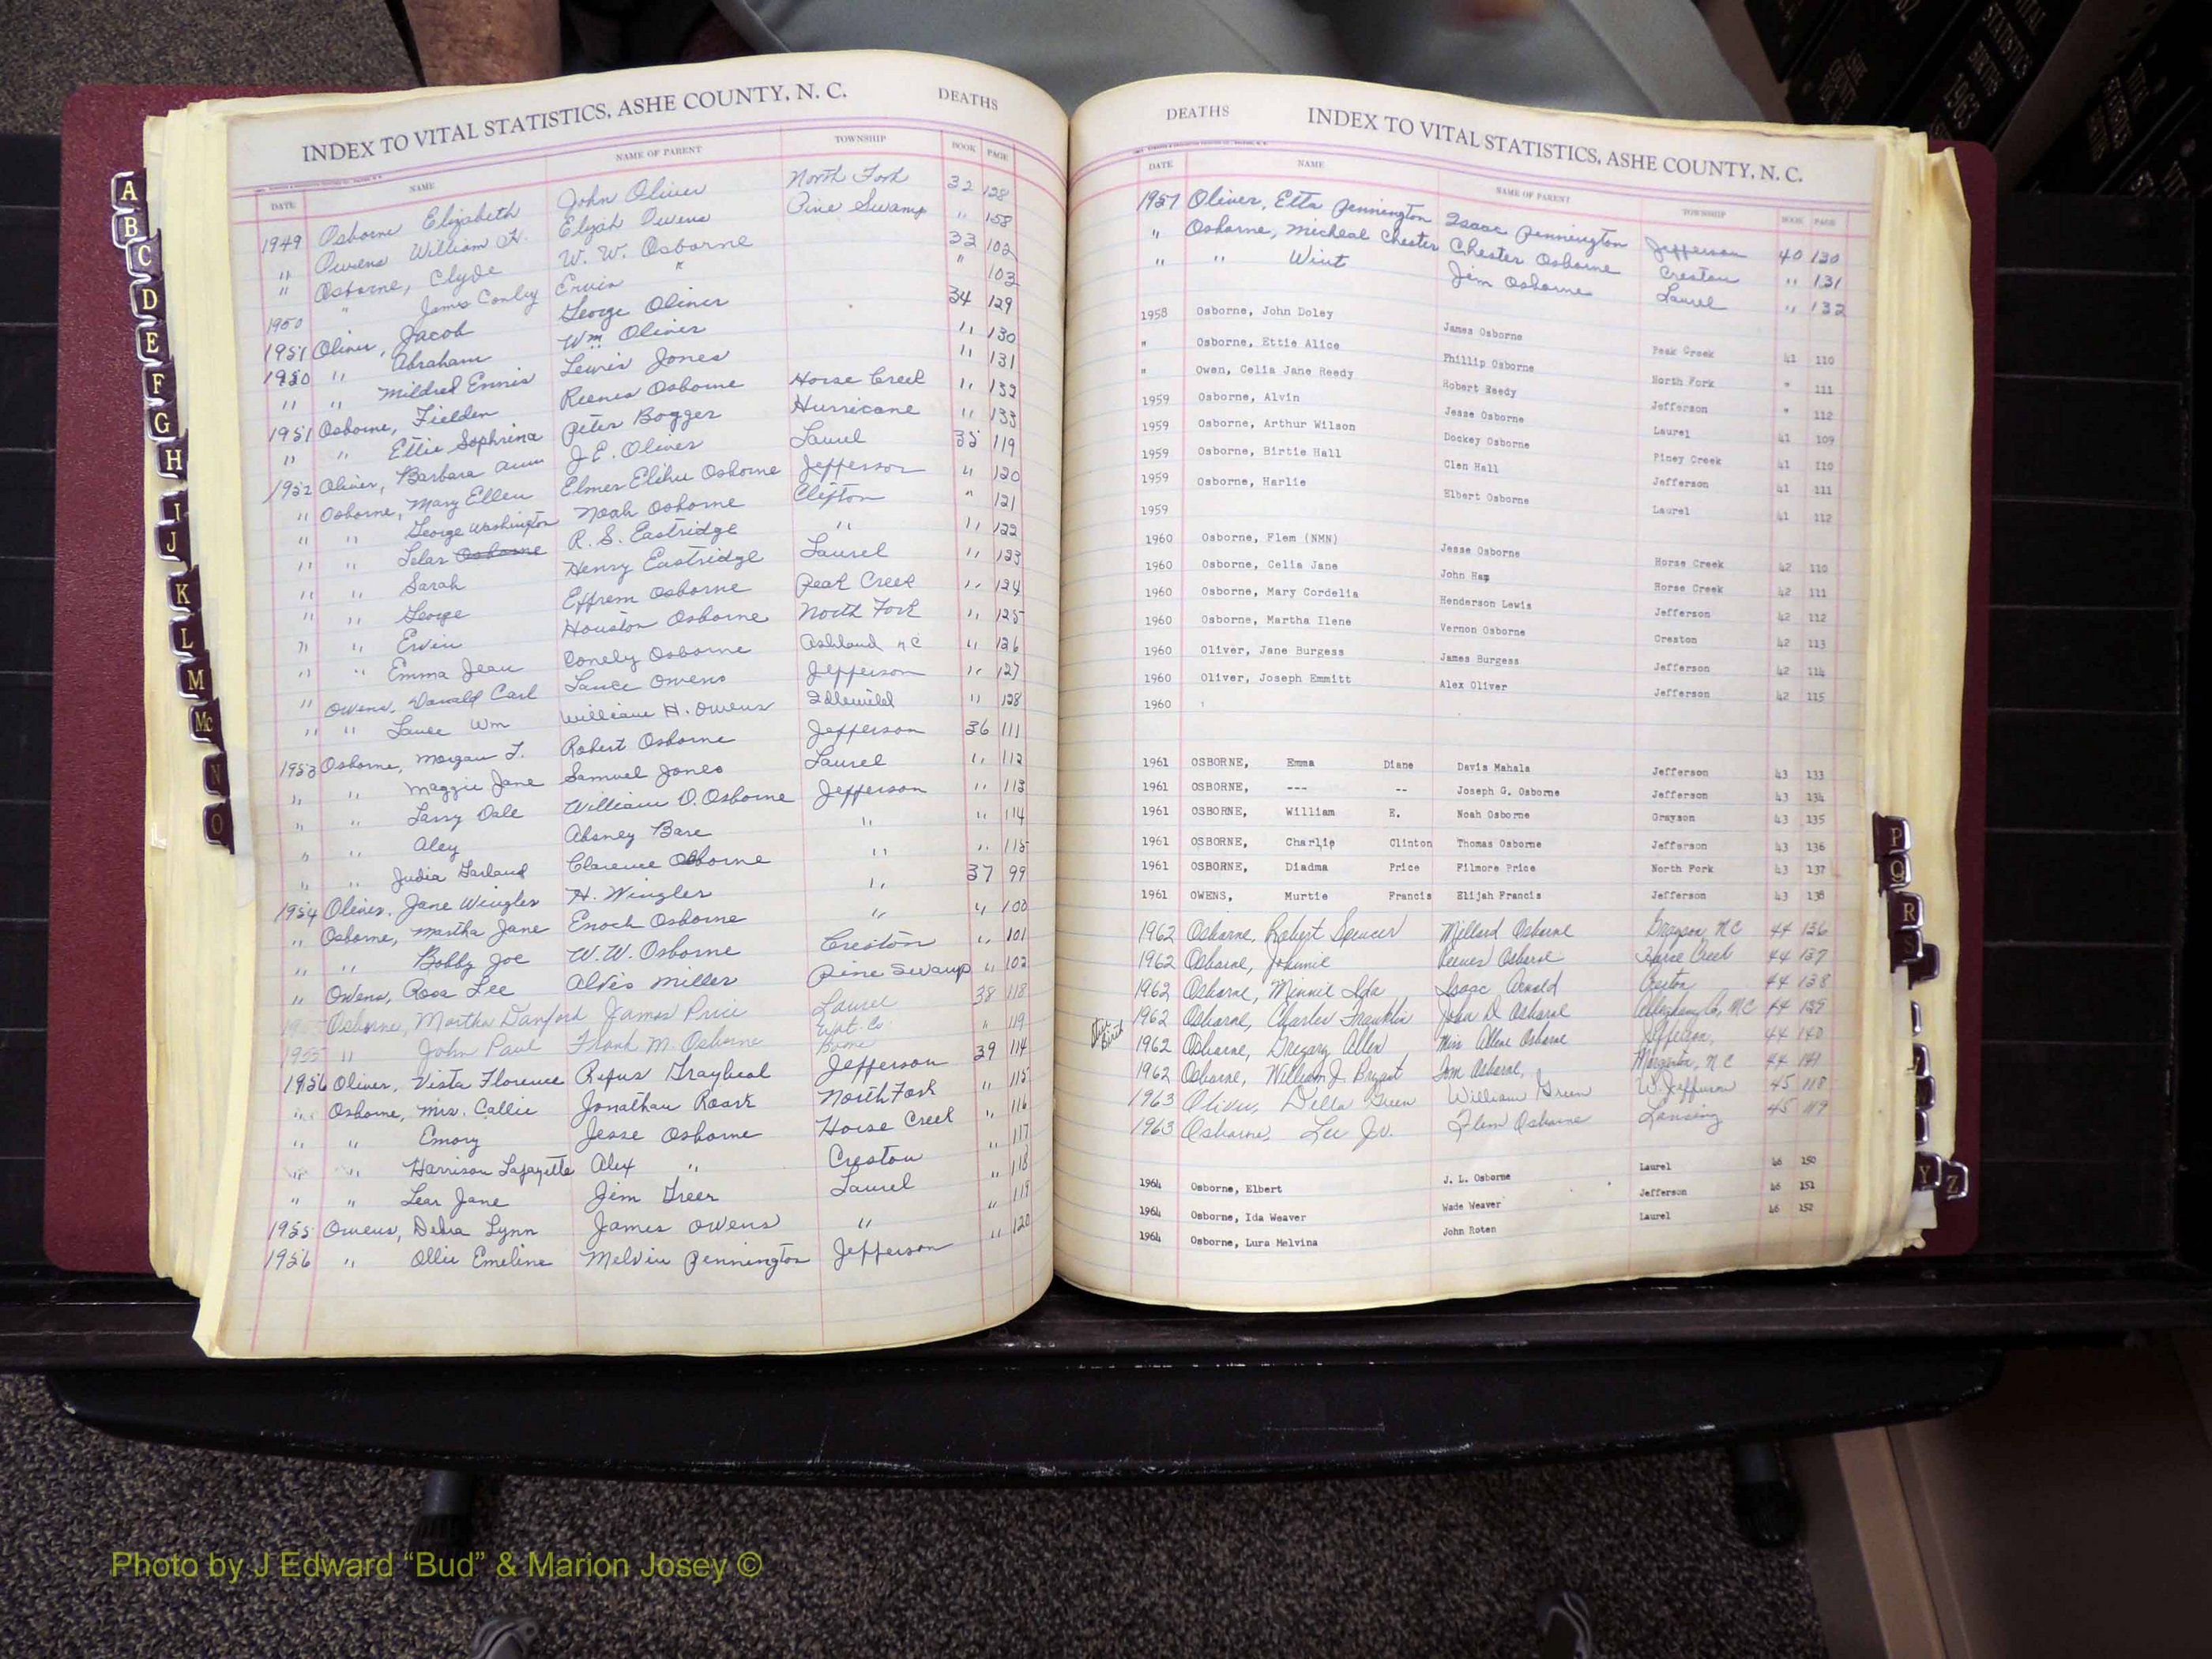 INDEX TO VITAL STATISTICS, ASHE COUNTY, N. C. DEATHS
DATE NAME NAME OF PARENT TOWNSHIP BOOK PAGE
1949 Osborne Elizabeth John Oliver North Fork 32 128
" Owens William H. Elijah Owens Pine Swamp " 158
" Osborne, Clyde W. W. Osborne 33 102
1950 " James Conley Ervin " " 103
1951 Oliver, Jacob George Oliver 34 129
1950 " Abraham Wm Oliver " 130
" " Mildred Ennis Lewis Jones " 131
1951 Osborne, Fielden Reeves Osborne Horse Creek " 132
" " Ettie Sophrina Peter Bogger Hurricane " 133
1952 Oliver, Barbara Ann J. E. Oliver Laurel 35 119
" Osborne, Mary Ellen Elmer Elihu Osborne Jefferson " 120
" " George Washington Noah Osborne Clifton " 121
" " Lelar Osborne R. S. Eastridge " " 122
" " Sarah Henry Eastridge Laurel " 123
" " George Effrem Osborne Peak Creek " 124
" " Ervin Houston Osborne North Fork " 125
" " Emma Jean Conely Osborne Ashland NC " 126
" Owens, Donald Carl Lance Owens Jefferson " 127
" " Lance Wm William H. Owens Idlewild " 128
1953 Osborne, Morgan T. Robert Osborne Jefferson 36 111
" " Maggie Jane Samuel Jones Laurel " 112
" " Larry Dale William D. Osborne Jefferson " 113
" " Aley Absney Bare " " 114
" " Judia Garland Clarence Osborne " " 115
1954 Oliver, Jane Wingler H. Wingler " 37 99
" Osborne, Martha Jane Enoch Osborne " " 100
" " Bobby Joe W. W. Osborne Creston " 101
" Owens, Rosa Lee Alvis Miller Pine Swamp " 102
1955 Osborne, Martha Danford James Price Laurel 38 118
1955 " John Paul Frank M. Osborne Wat. Co. Boone " 119
1956 Oliver, Vista Florence Rufus Graybeal Jefferson 39 114
" Osborne, Mrs. Callie Jonathan Roark North Fork " 115
" " Emory Jesse Osborne Horse Creek " 116
" " Harrison Lafayette Alex " Creston " 117
" " Lear Jane Jim Greer Laurel " 118
1955 Owens, Debra Lynn James Owens " " 119
1956 " Ollie Emeline Melvin Pennington Jefferson " 120
A
B
C
D
E
F
G
H
I
J
K
L
M
Mc
N
O
DEATHS INDEX TO VITAL STATISTICS, ASHE COUNTY, N. C.
DATE NAME NAME OF PARENT TOWNSHIP BOOK PAGE
1957 Oliver, Etta Pennington Isaac Pennington Jefferson 40 130
" Osborne, Micheal Chester Chester Osborne Creston " 131
" " Wint Jim Osborne Laurel " 132
1958 Osborne, John Doley James Osborne Peak Creek 41 110
" Osborne, Ettie Alice Phillip Osborne North Fork " 111
" Owen, Celia Jane Reedy Robert Reedy Jefferson " 112
1959 Osborne, Alvin Jesse Osborne Laurel 41 109
1959 Osborne, Arthur Wilson Dockey Osborne Piney Creek 41 110
1959 Osborne, Birtie Hall Clen Hall Jefferson 41 111
1959 Osborne, Harlie Elbert Osborne Laurel 41 112
1959
1960 Osborne, Flem (NMN) Jesse Osborne Horse Creek 42 110
1960 Osborne, Celia Jane John Ham Horse Creek 42 111
1960 Osborne, Mary Cordelia Henderson Lewis Jefferson 42 112
1960 Osborne, Martha Ilene Vernon Osborne Creston 42 113
1960 Oliver, Jane Burgess James Burgess Jefferson 42 114
1960 Oliver, Joseph Emmitt Alex Oliver Jefferson 42 115
1960
1961 OSBORNE, Emma Diane Davis Mahala Jefferson 43 133
1961 OSBORNE, --- -- Joseph G. Osborne Jefferson 43 134
1961 OSBORNE, William E. Noah Osborne Grayson 43 135
1961 OSBORNE, Charlie Clinton Thomas Osborne Jefferson 43 136
1961 OSBORNE, Diadma Price Filmore Price North Fork 43 137
1961 OWENS, Murtie Francis Elijah Francis Jefferson 43 138
1962 Osborne, Robert Spencer Millard Osborne Grayson NC 44 136
1962 Osborne, Johnnie Reeves Osborne Horse Creek 44 137
1962 Osborne, Minnie Ida Isaac Arnold Creston 44 138
1962 Osborne, Charles Franklin John D Osborne Alleghany Co, NC 44 139
Birth 1962 Osborne, Gregory Allen Miss Allene Osborne Jefferson, 44 140
1962 Osborne, William J. Bryant Tom Osborne, Morganton, NC 44 141
1963 Oliver, Della Green William Green W. Jefferson 45 118
1963 Osborne, Lee Jr. Flem Osborne Lansing 45 119
1964 Osborne, Elbert J. L. Osborne Laurel 46 150
1964 Osborne, Ida Weaver Wade Weaver Jefferson 46 151
1964 Osborne, Lura Melvina John Roten Laurel 46 152
P
Q
R
S
Y
Z
VITAL STATISTICS BIRTHS 1963
Photo by J Edward “Bud” & Marion Josey ©